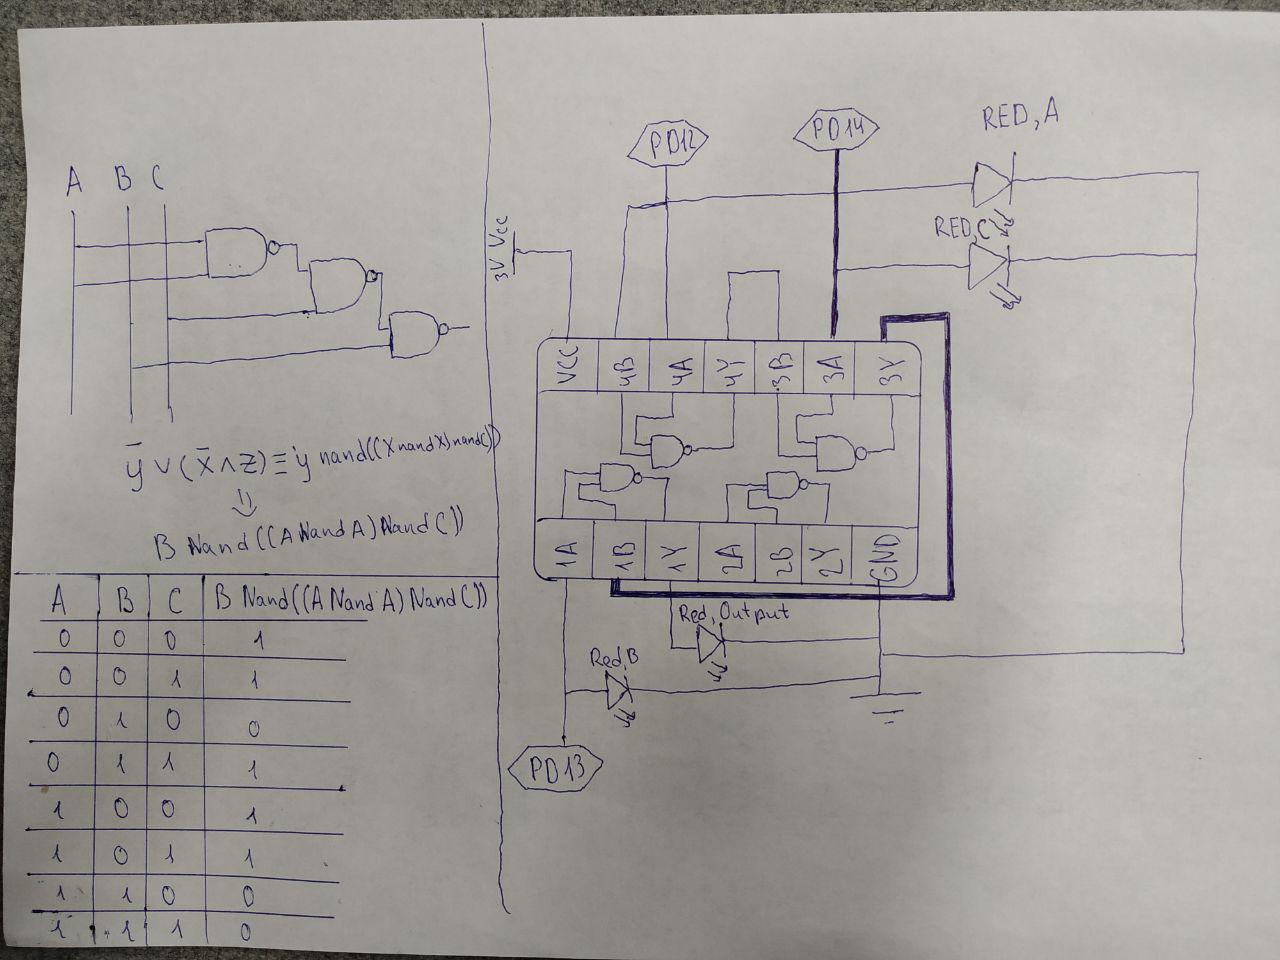 A B C
ȳ ∨ (x̄ ∧ z) ≡ y nand((x nand x) nand C))
⇓
B Nand((A Nand A) Nand C))
A B C B Nand((A Nand A) Nand C))
0 0 0 1
0 0 1 1
0 1 0 0
0 1 1 1
1 0 0 1
1 0 1 1
1 1 0 0
1 1 1 0
PD12
PD14
RED, A
RED, C
3V Vcc
VCC 4B 4A 4Y 3B 3A 3Y
1A 1B 1Y 2A 2B 2Y GND
Red, Output
Red, B
PD13